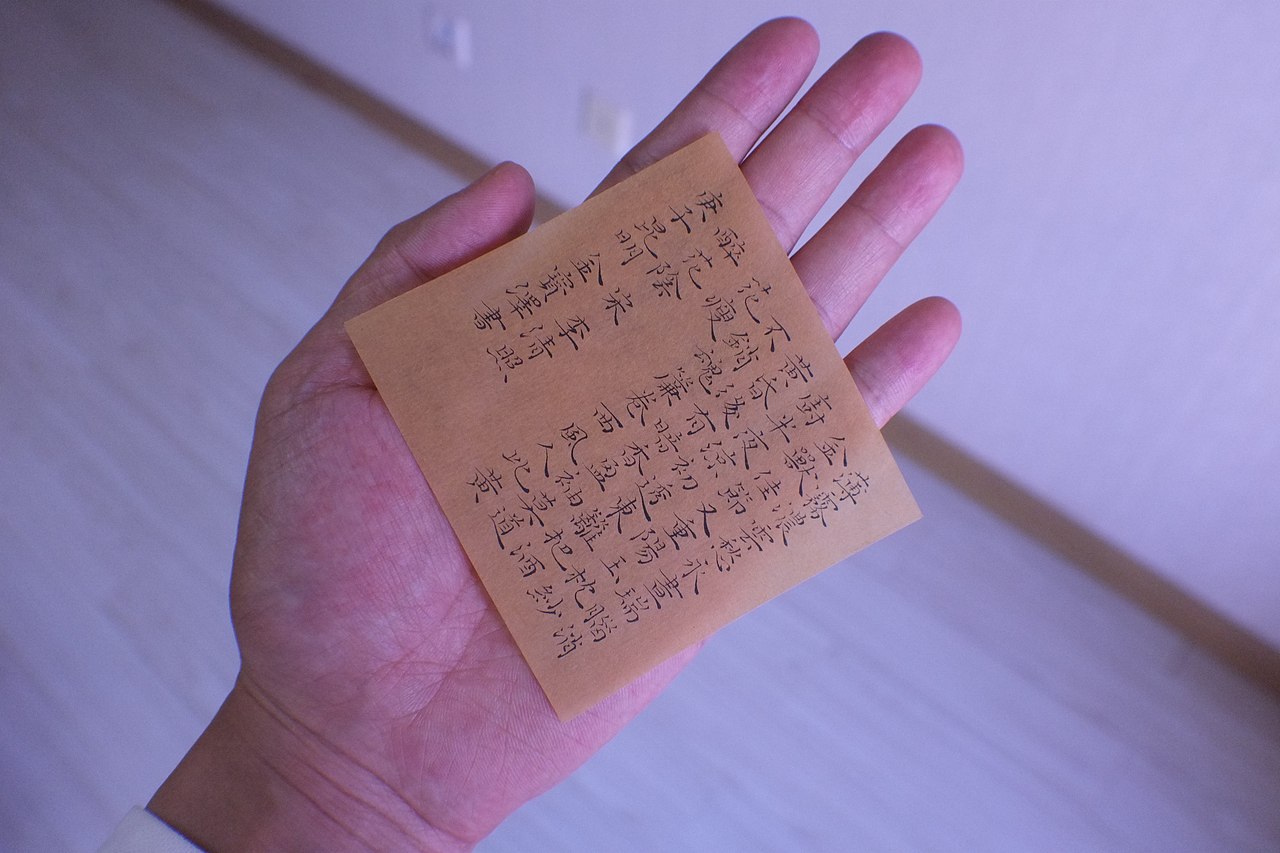 薄霧濃雲愁永晝瑞腦消
金獸佳節又重陽玉枕紗
廚半夜涼初透東離把酒
黃昏後有暗香盈袖莫道
不銷魂簾卷西風人比黃
花瘦
醉花陰 宋 李清照
庚子昆明 金寶澤書